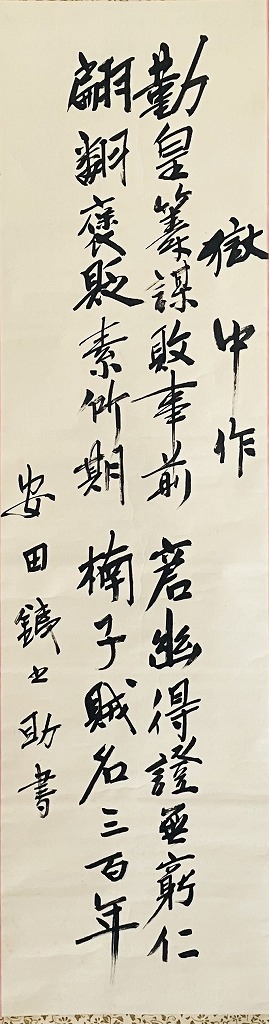 獄中作
勤皇籌謀敗事前 窘幽得證無窮仁
翩翻褒貶素所期 楠子賊名三百年
安田鐵之助書